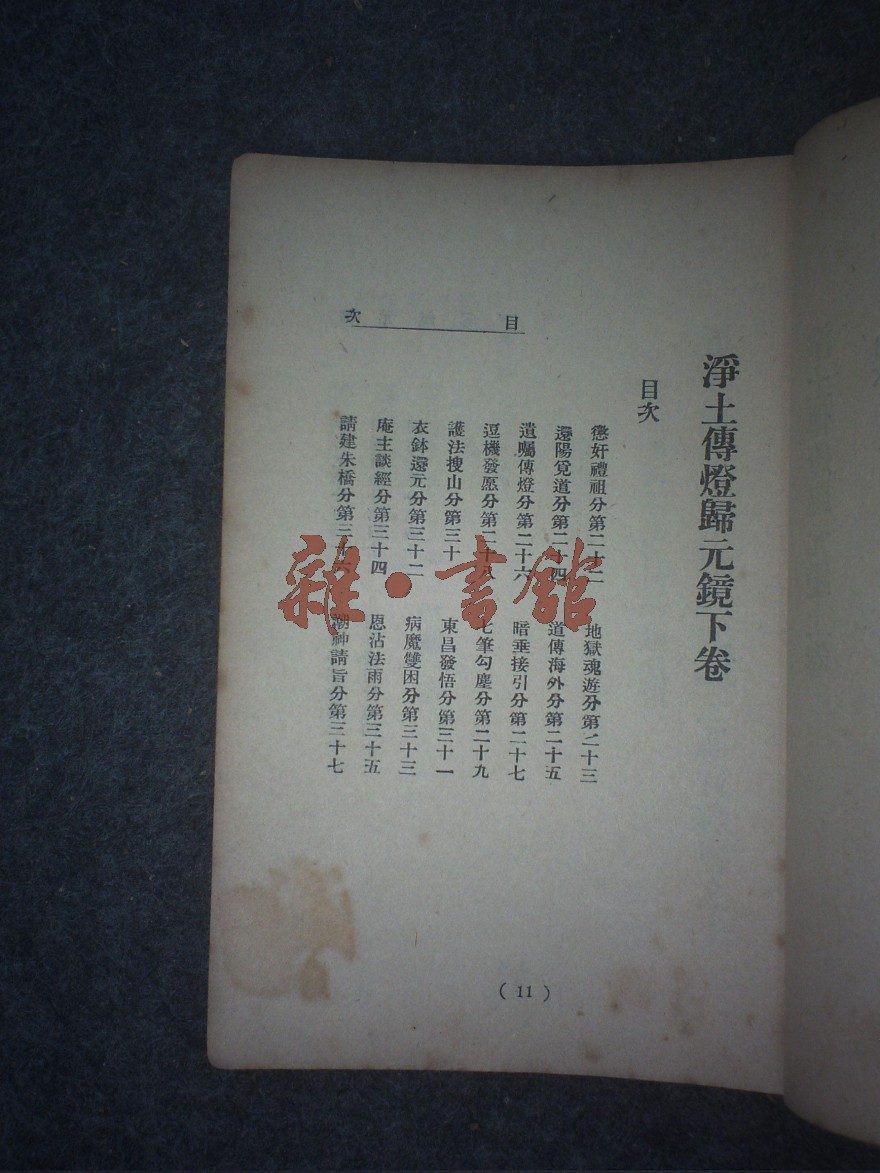 淨土傳燈歸元鏡下卷
目次
懲奸禮祖分第二十二
地獄魂遊分第二十三
還陽覓道分第二十四
道傳海外分第二十五
遺囑傳燈分第二十六
暗垂接引分第二十七
逗機發愿分第二十八
七筆勾塵分第二十九
護法搜山分第三十
東昌發悟分第三十一
衣鉢還元分第三十二
病魔雙困分第三十三
庵主談經分第三十四
恩沾法雨分第三十五
請建朱橋分第三十六
潮神請旨分第三十七
目次
(11)
雜·書館